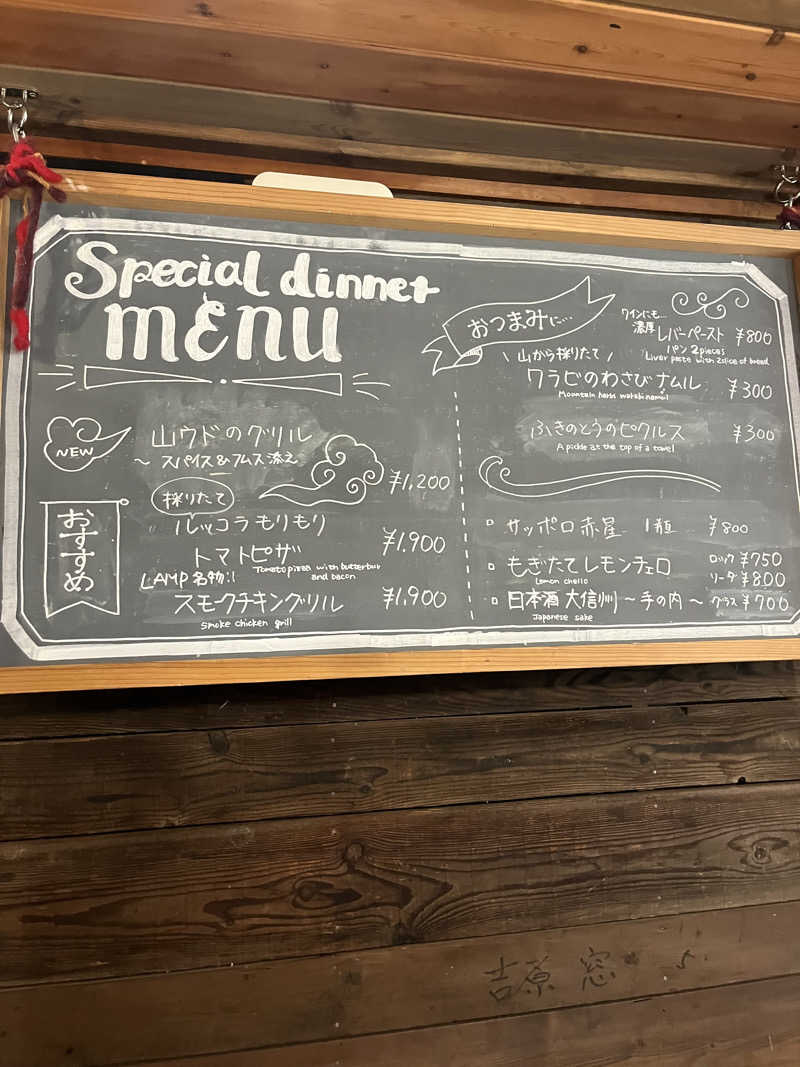 Special dinner
MENU
NEW
山ウドのグリル
～スパイス&フムス添え
¥1,200
おすすめ
採りたて
ルッコラもりもり
トマトピザ
¥1,900
Tomato pizza with butterbur
and bacon
LAMP名物!!
スモークチキングリル ¥1,900
Smoke chicken grill
おつまみに…
ワインにも…
濃厚 レバーペースト ¥800
パン2pieces
Liver paste with 2slice of bread
\ 山から採りたて /
ワラビのわさびナムル ¥300
Mountain herb warabi namul
ふきのとうのピクルス ¥300
A pickle at the top of a towel
サッポロ赤星 1瓶 ¥800
もぎたてレモンチェロ ロック ¥750
Lemon chello ソーダ ¥800
日本酒 大信州 ～手の内～ グラス ¥700
Japanese sake
吉原